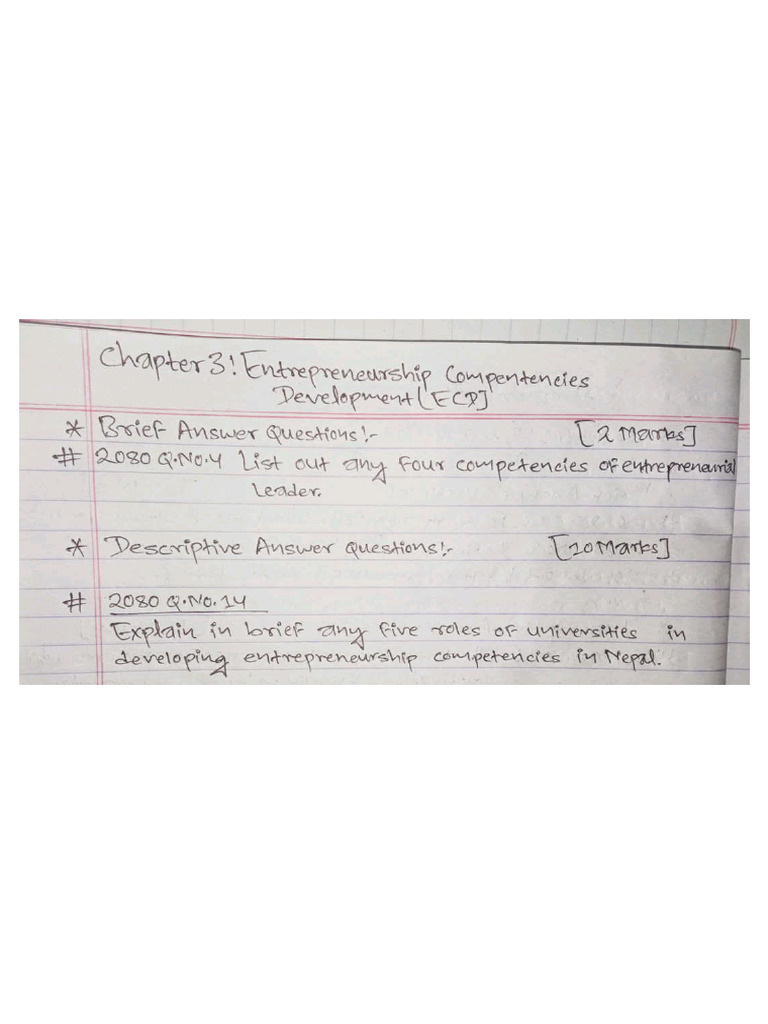 Chapter 3! Entrepreneurship Compentencies
Development [ECD]
* Brief Answer Questions!- [2 Marks]
# 2080 Q.No.4 List out any four competencies of entrepreneurial
Leader.
* Descriptive Answer Questions!- [10 Marks]
# 2080 Q.No.14
Explain in brief any five roles of universities in
developing entrepreneurship competencies in Nepal.